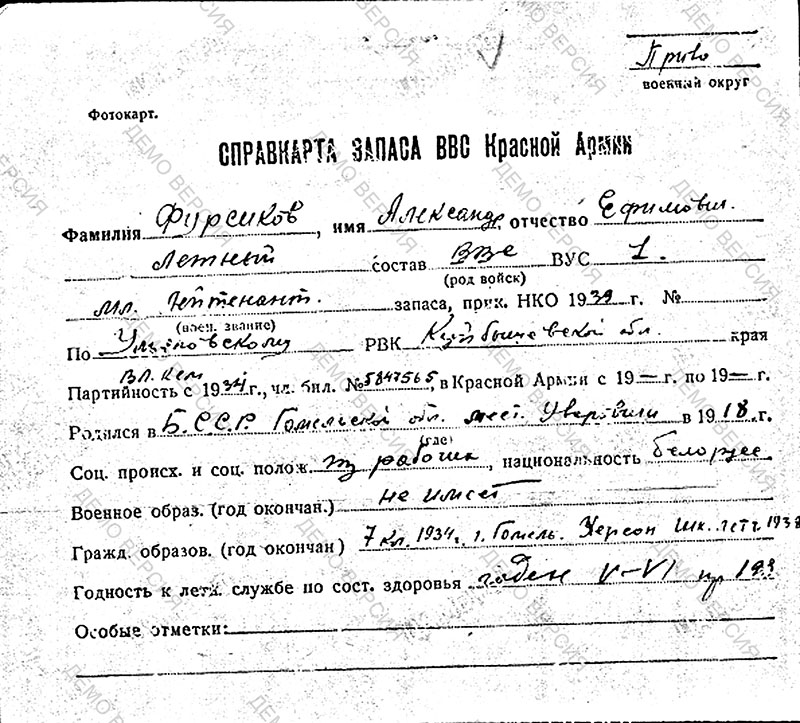 Приво
военный округ
Фотокарт.
СПРАВКАРТА ЗАПАСА ВВС Красной Армии
Фамилия Фурсиков, имя Александр, отчество Ефимович.
Летный состав ВВС ВУС 1.
(род войск)
мл. лейтенант. запаса, прик. НКО 1939 г. №
(воен. звание)
По Ульяновскому РВК Куйбышевской обл. края
ВЛКСМ
Партийность с 1934 г., чл. бил. № 5847565, в Красной Армии с 19— г. по 19— г.
Родился в Б.С.С.Р. Гомельской обл. мест. Уваровичи в 1918 г.
(где)
Соц. происх. и соц. полож. из рабочих, национальность белорус
Военное образ. (год окончан.) не имеет
Гражд. образов. (год окончан) 7 кл. 1934 г. г. Гомель. Херсон шк. летч 1938
Годность к летн. службе по сост. здоровья годен V-VI пр 193
Особые отметки:
ДЕМО ВЕРСИЯ